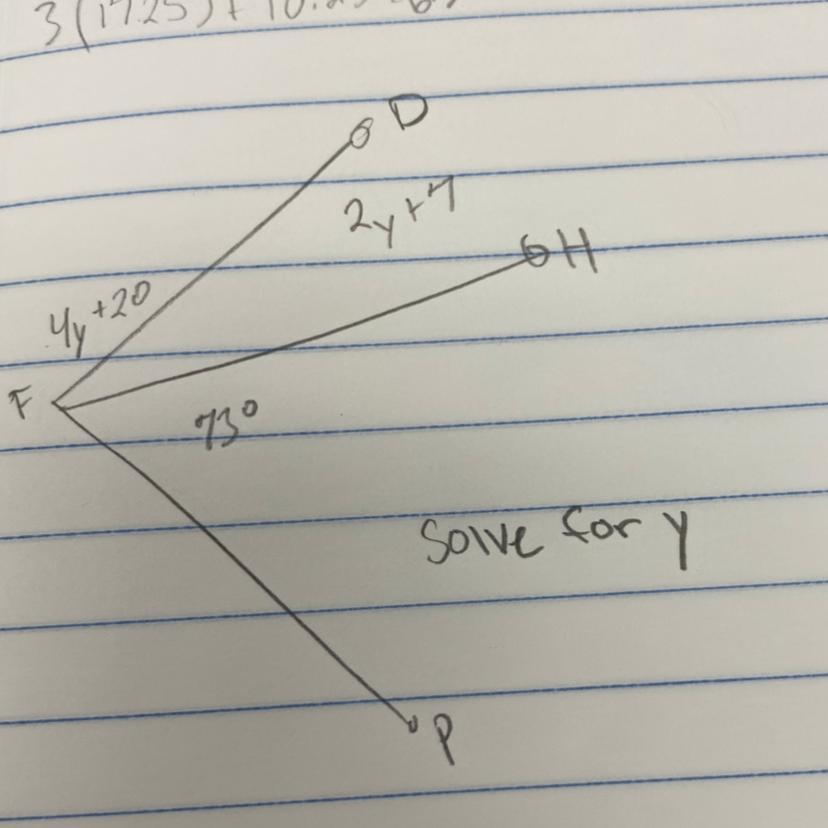 3(17.25) + 10.25
D
2y+7
H
4y+20
F
73°
Solve for y
P